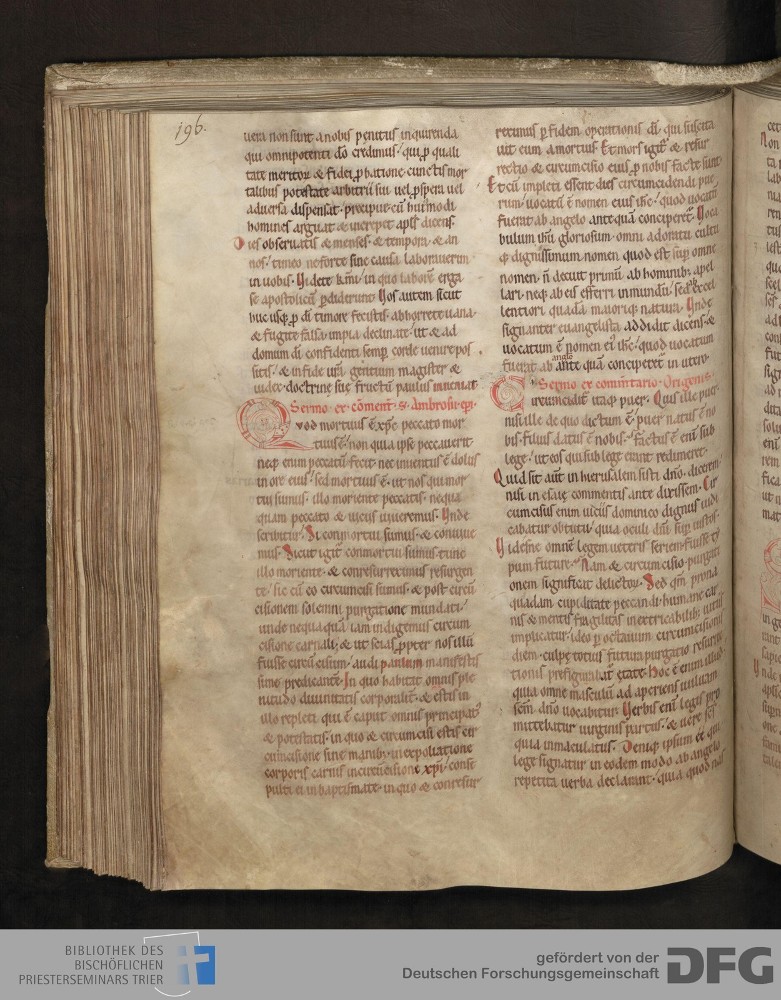 196.
uera non sunt a nobis penitus inquirenda
qui omnipotenti dō credimus· qui p̱ quali
tate meritoꝝ & fidei p̱batione· cunctis mor
talibus potestate arbitrii sui uel p̱spera uel
aduersa dispensat· precipue cū huiꝰmodi
homines arguat & increpet apl̄s dicens·
Dies obseruatis & menses· & tempora· & an
nos· timeo ne forte sine causa laborauerim
in uobis· Videte km̄i· in quo labore erga
se apostolicū p̱diderunt· Vos autem sicut
huc usq; p̱ di timore fecistis· abhorrete uana·
& fugite falsa· impia declinate· ut & ad
domum di confidenti semp̱ corde uenire pos
sitis· & in fide um̄ gentium magister &
iudex doctrine sue fructū paulus inueniat·
Sermo ex cōment· s· Ambrosii epi·
Quod mortuus ē xp̄c peccato mor
tuus ē· non quia ipse peccauerit·
neq; enim peccatū fecit· nec inuentus ē dolus
in ore eius· sed mortuus ē· ut nos qui mor
tui sumus· illo moriente peccatis· nequa
quam peccato & uiciis uiueremus· Unde
scribitur· Si conmortui sumus· & conuiue
mus· Sicut igit̄ conmortui sumus tunc
illo moriente· & conresurreximus resurgen
te· sic cū eo circumcisi sumus· & post circū
cisionem solemni purgatione mundati·
unde nequaquā iam indigemus circum
cisione carnali· & ut scias p̱pter nos illū
fuisse circūcisum· audi paulum manifestis
sime predicante· In quo habitat omnis ple
nitudo diuinitatis corporalit̄· & estis in
illo repleti qui ē caput omnis principatꝰ
& potestatis· in quo & circumcisi estis cir
cumcisione sine manibꝫ· in expoliatione
corporis carnis in circūcisione xp̄i· conse
pulti ei in baptismate· in quo & conresur
rexistis p̱ fidem operationis dī· qui suscita
uit eum a mortuis· Et mors igit̄ & resur
rectio & circumcisio eius p̱ nobis facte sunt·
Et cū impleti essent dies circumcidendi pue
rum· uocatū ē nomen eius ihc· quod uocatū
fuerat ab angelo antequā conciperet̄· Voca
bulum ihu gloriosum· omni adoratu cultu
q; dignissimum· nomen quod est sup̱ omne
nomen· n̄ decuit primū ab hominibꝫ apel
lari· neq; ab eis efferri in mundū· sed excel
lentiori quadā maioriq; natura· Unde
signanter euangelista addidit dicens· &
uocatum ē nomen eiꝰ ihc· quod uocatum
fuerat ab anglo ante quā conciperet̄ in utero·
Sermo ex cōmītario Origenis·
Circumcidit̄ itaq; puer· Quis ille puer·
nisi ille de quo dictum ē· puer natus ē no
bis· filius datus ē nobis· factus ē enī sub
lege· ut eos qui sub lege erant redimeret·
Quid sit aut̄ in hierusalem sisti dn̄o· dicerem·
nisi in esaię commentis ante dixissem· Cir
cumcisus enim uiciis dominico dignus iudi
cabatur obtutu· quia oculi dn̄i sup̱ iustos·
Vides ne omnē legem ueteris seriem fuisse ty
pum futuri· Nam & circumcisio purgati
onem significat delictoꝝ· Sed qm̄ prona
quadam cupiditate peccandi· humane car
nis & mentis fragilitas inextricabilibꝫ uitiis
implicatur· ideo p̱ octauum circumcisionis
diem· culpę totius futura purgatio resurrec
tionis prefigurabat̄ etate· Hoc ē enim illud·
quia omne masculū ad aperiens uuluam
scm̄ dn̄o uocabitur· Verbis enī legis pro
mittebatur uirginis partus· & uere sc̄s
quia inmaculatus· Deniq; ipsum ee qui
lege signatur in eodem modo ab angelo
repetita uerba declarant· quia quod nas
BIBLIOTHEK DES
BISCHÖFLICHEN
PRIESTERSEMINARS TRIER
gefördert von der
Deutschen Forschungsgemeinschaft
DFG